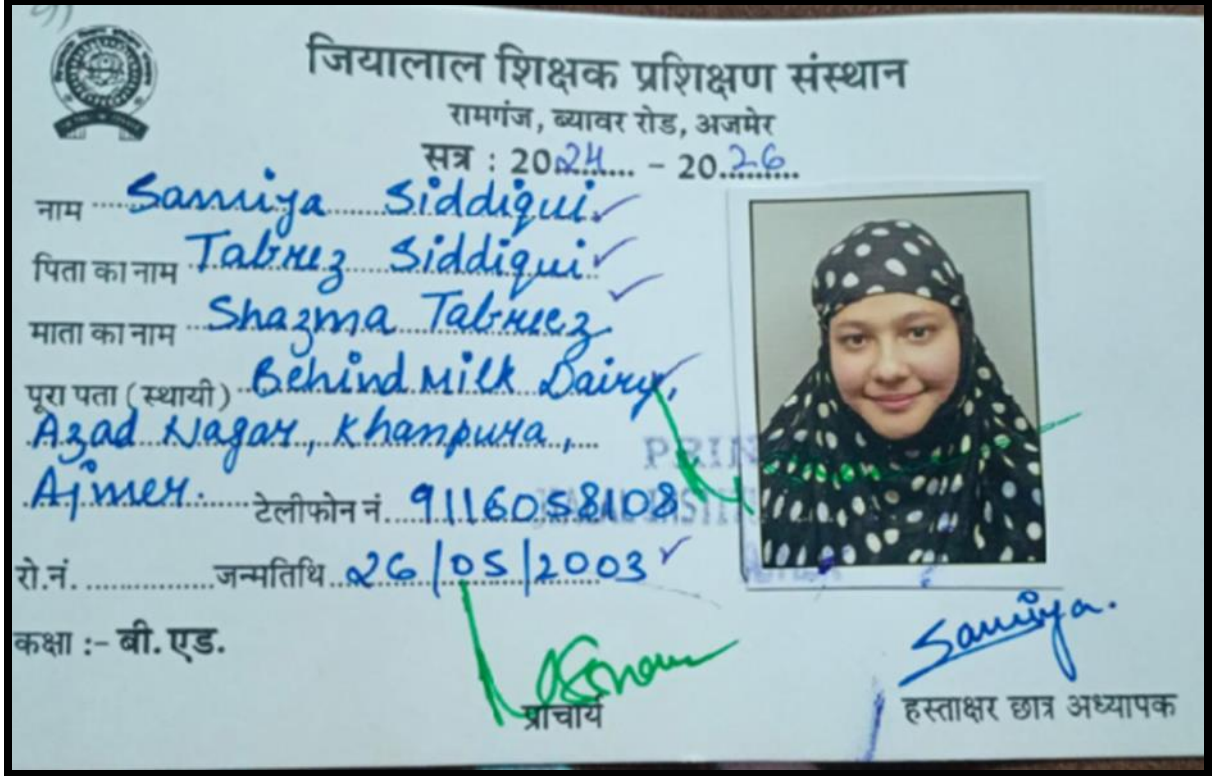 जियालाल शिक्षक प्रशिक्षण संस्थान
रामगंज, ब्यावर रोड, अजमेर
सत्र : 2024 - 2026
नाम Samiya Siddiqui
पिता का नाम Tabrez Siddiqui
माता का नाम Shazma Tabreez
पूरा पता ( स्थायी ) Behind Milk Dairy,
Azad Nagar, Khanpura,
Ajmer. टेलीफोन नं. 9116058108
रो.नं. जन्मतिथि 26/05/2003
कक्षा :- बी.एड.
Samiya.
प्राचार्य हस्ताक्षर छात्र अध्यापक